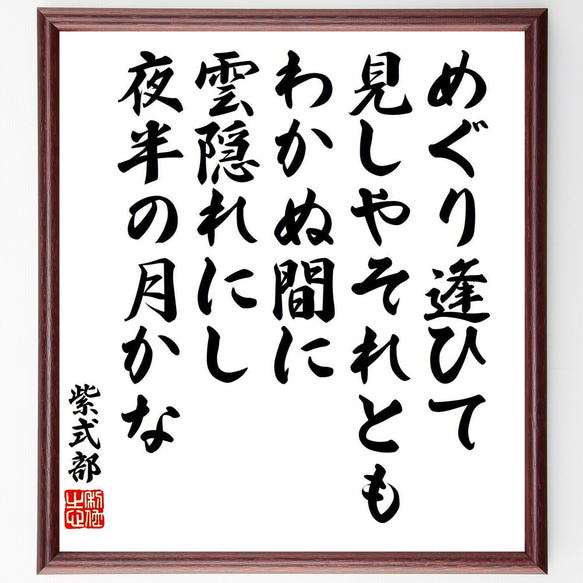 めぐり逢ひて
見しやそれとも
わかぬ間に
雲隠れにし
夜半の月かな
紫式部